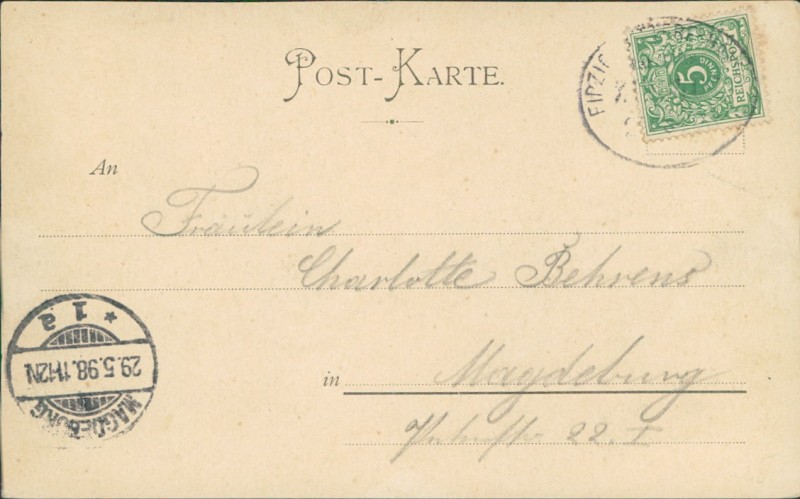 POST-KARTE.
5
PFENNIG
REICHSPOST
An
Fräulein
Charlotte Behrens
in Magdeburg
22. I
* 1 a
29.5.98.11-12N.
MAGDEBURG